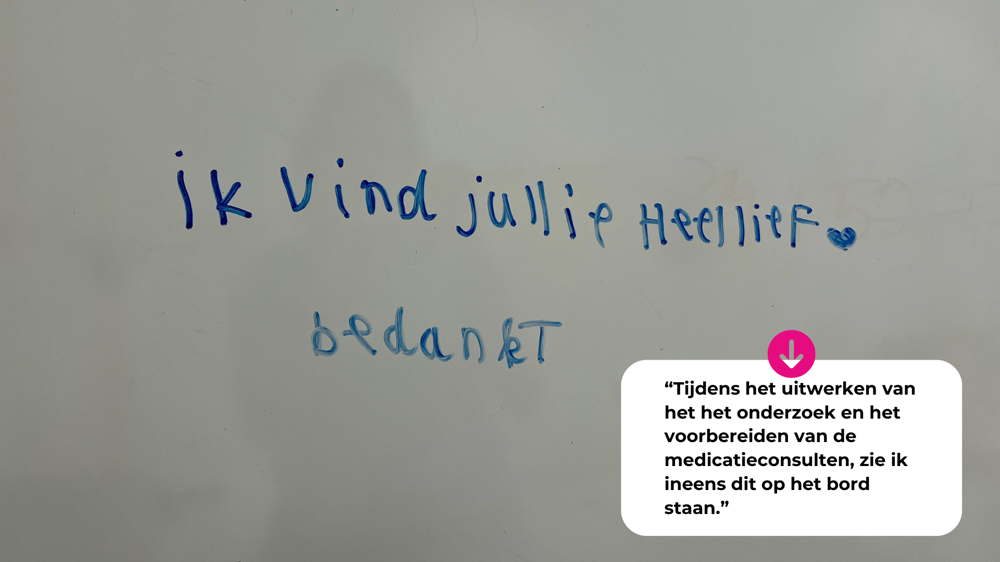 ik vind jullie Heel lief
bedankT
“Tijdens het uitwerken van
het het onderzoek en het
voorbereiden van de
medicatieconsulten, zie ik
ineens dit op het bord
staan.”